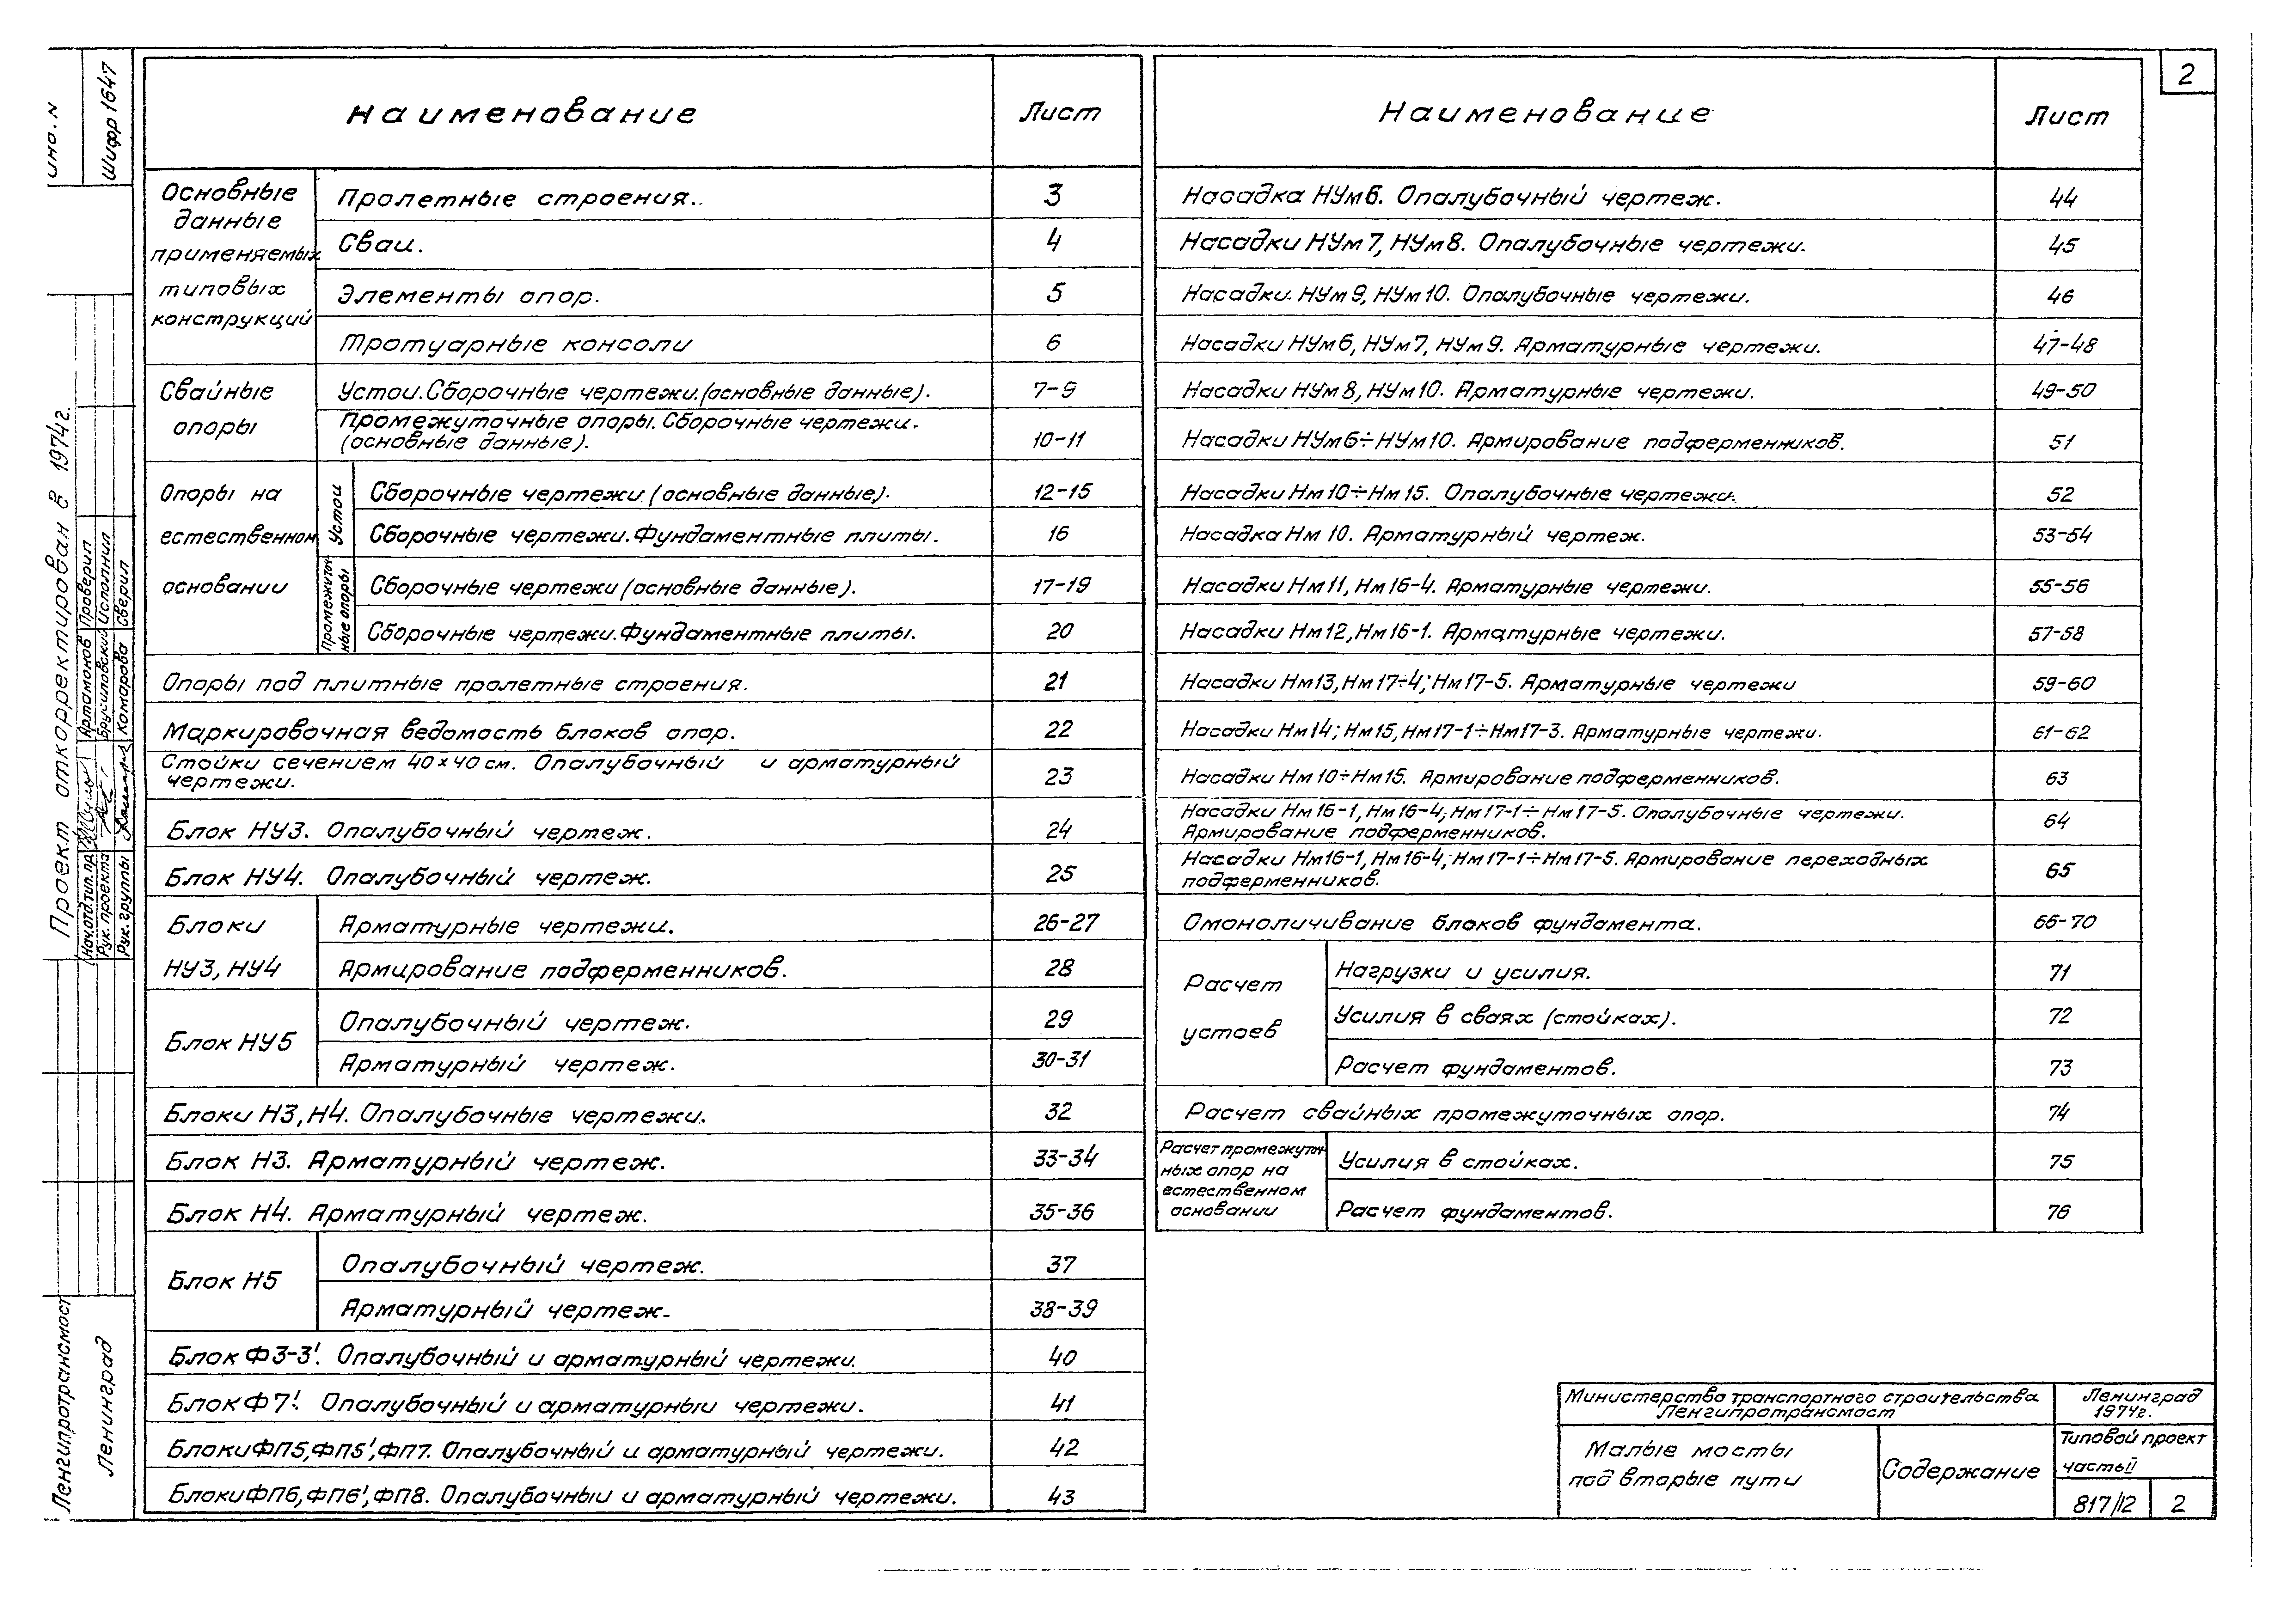 2
инв. N
Шифр 1647
Проект откорректирован в 1974г.
Нач.отд.тип.пр. Артамонов Проверил
Рук. проекта Брусиловский Исполнил
Рук. группы Комарова Сверил
Ленгипротрансмост
Ленинград
Наименование Лист
Основные данные применяемых типовых конструкций
Пролетные строения. 3
Сваи. 4
Элементы опор. 5
Тротуарные консоли 6
Свайные опоры
Устои. Сборочные чертежи. (основные данные). 7-9
Промежуточные опоры. Сборочные чертежи.
(основные данные). 10-11
Опоры на естественном основании
Устои
Сборочные чертежи. (основные данные). 12-15
Сборочные чертежи. Фундаментные плиты. 16
Промежуточные опоры
Сборочные чертежи (основные данные). 17-19
Сборочные чертежи. Фундаментные плиты. 20
Опоры под плитные пролетные строения. 21
Маркировочная ведомость блоков опор. 22
Стойки сечением 40×40 см. Опалубочный и арматурный
чертежи. 23
Блок НУ3. Опалубочный чертеж. 24
Блок НУ4. Опалубочный чертеж. 25
Блоки НУ3, НУ4
Арматурные чертежи. 26-27
Армирование подферменников. 28
Блок НУ5
Опалубочный чертеж. 29
Арматурный чертеж. 30-31
Блоки Н3, Н4. Опалубочные чертежи. 32
Блок Н3. Арматурный чертеж. 33-34
Блок Н4. Арматурный чертеж. 35-36
Блок Н5
Опалубочный чертеж. 37
Арматурный чертеж. 38-39
Блок Ф3-3'. Опалубочный и арматурный чертежи. 40
Блок Ф7'. Опалубочный и арматурный чертежи. 41
Блоки ФП5, ФП5', ФП7. Опалубочный и арматурный чертежи. 42
Блоки ФП6, ФП6', ФП8. Опалубочный и арматурный чертежи. 43
Наименование Лист
Насадка НУм6. Опалубочный чертеж. 44
Насадки НУм7, НУм8. Опалубочные чертежи. 45
Насадки НУм9, НУм10. Опалубочные чертежи. 46
Насадки НУм6, НУм7, НУм9. Арматурные чертежи. 47-48
Насадки НУм8, НУм10. Арматурные чертежи. 49-50
Насадки НУм6÷НУм10. Армирование подферменников. 51
Насадки Нм10÷Нм15. Опалубочные чертежи. 52
Насадка Нм10. Арматурный чертеж. 53-54
Насадки Нм11, Нм16-4. Арматурные чертежи. 55-56
Насадки Нм12, Нм16-1. Арматурные чертежи. 57-58
Насадки Нм13, Нм17-4, Нм17-5. Арматурные чертежи 59-60
Насадки Нм14; Нм15, Нм17-1÷Нм17-3. Арматурные чертежи. 61-62
Насадки Нм10÷Нм15. Армирование подферменников. 63
Насадки Нм16-1, Нм16-4, Нм17-1÷Нм17-5. Опалубочные чертежи.
Армирование подферменников. 64
Насадки Нм16-1, Нм16-4, Нм17-1÷Нм17-5. Армирование переходных
подферменников. 65
Омоноличивание блоков фундамента. 66-70
Расчет устоев
Нагрузки и усилия. 71
Усилия в сваях (стойках). 72
Расчет фундаментов. 73
Расчет свайных промежуточных опор. 74
Расчет промежуточных опор на естественном основании
Усилия в стойках. 75
Расчет фундаментов. 76
Министерство транспортного строительства
Ленгипротрансмост
Ленинград
1974г.
Малые мосты
под вторые пути
Содержание
Типовой проект
часть II
817/12 2